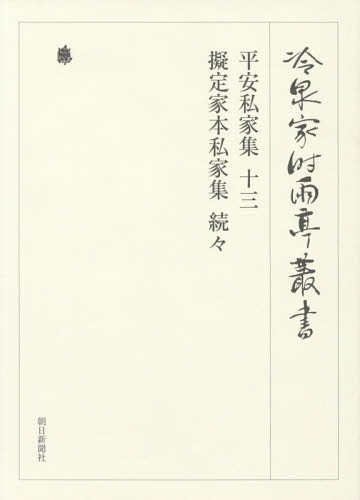 冷泉家時雨亭叢書
平安私家集 十三
擬定家本私家集 続々
朝日新聞社